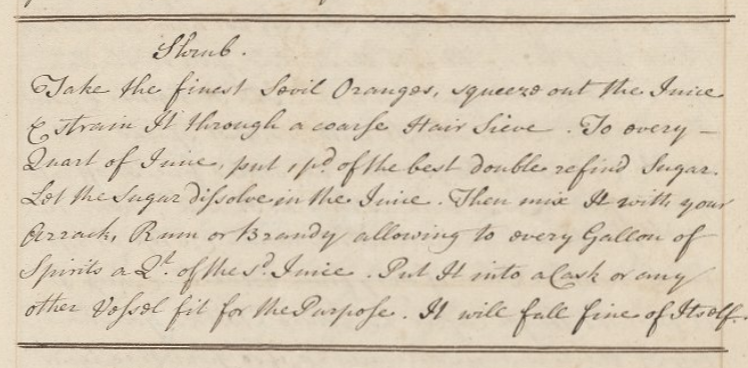 Shrub.
Take the finest Sevil Oranges, squeeze out the Juice
& strain It through a coarse Hair Sieve. To every –
Quart of Juice, put 1 pd. of the best double refind Sugar.
Let the Sugar dissolve in the Juice. Then mix It with your
Arrack, Rum or Brandy allowing to every Gallon of
Spirits a Qt. of the sd. Juice. Put It into a Cask or any
other Vessel fit for the Purpose. It will fall fine of Itself.